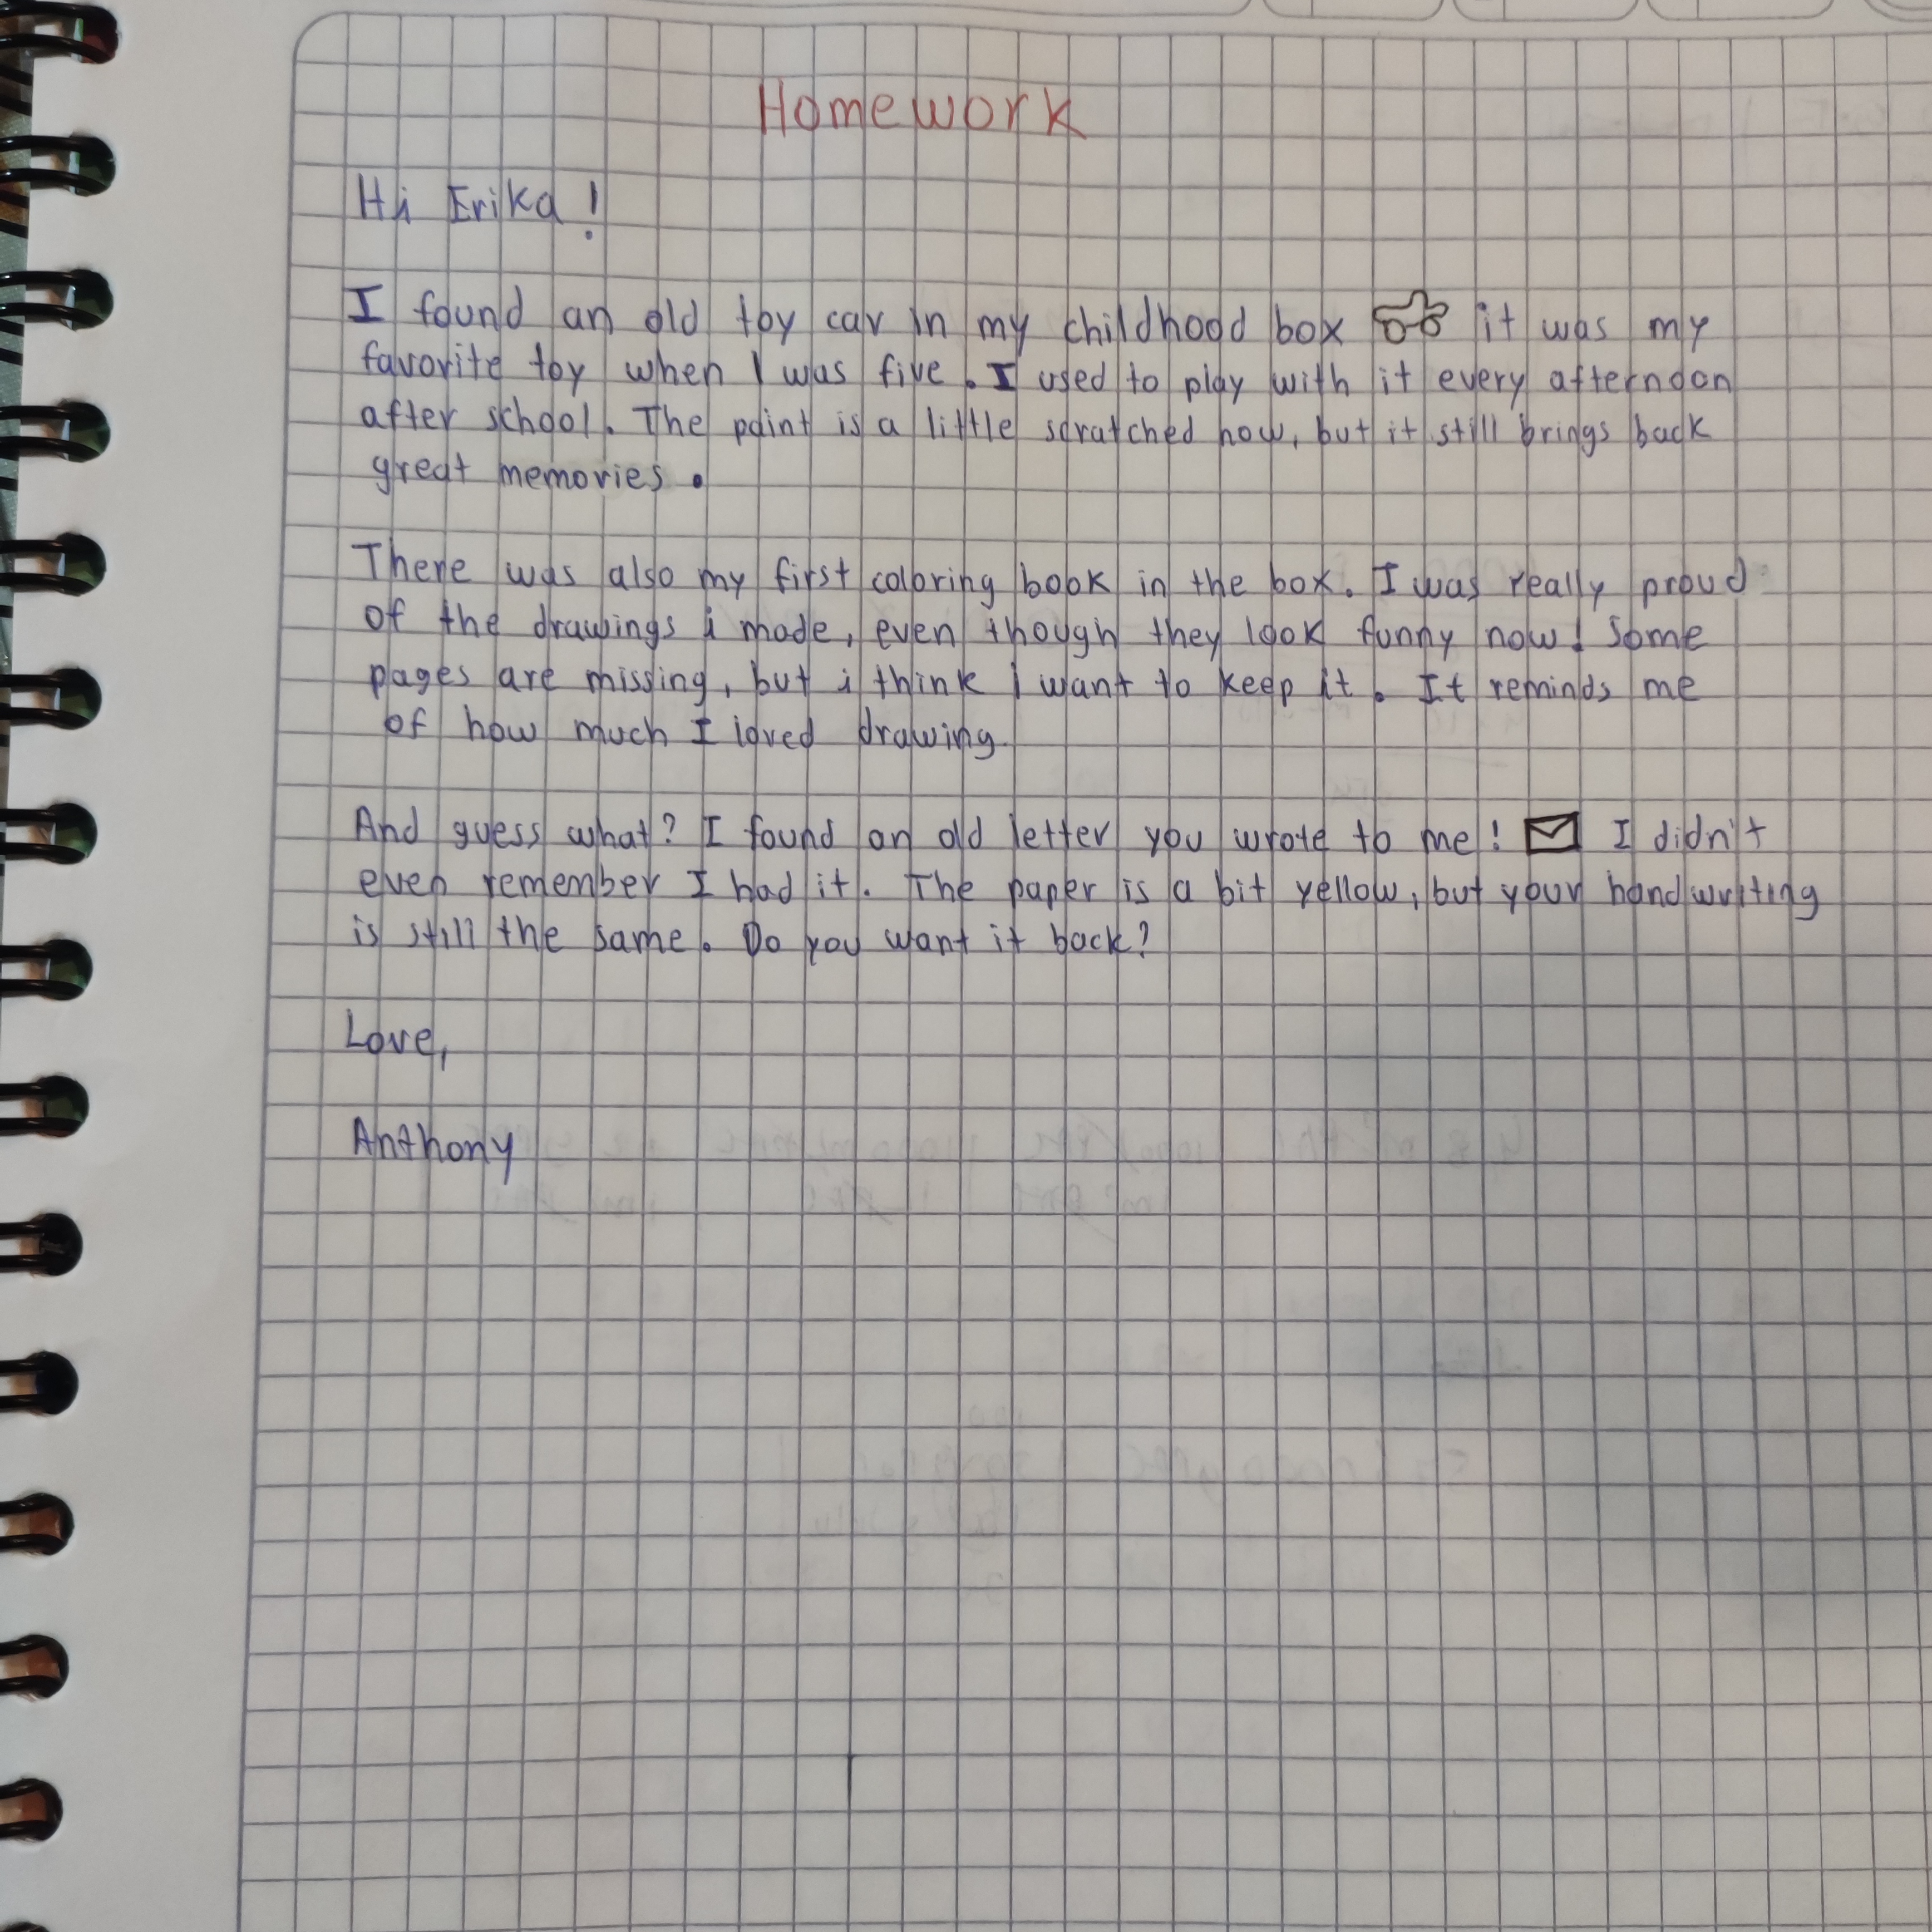 Homework
Hi Erika!
I found an old toy car in my childhood box it was my
favorite toy when I was five. I used to play with it every afternoon
after school. The paint is a little scratched now, but it still brings back
great memories.
There was also my first coloring book in the box. I was really proud
of the drawings i made, even though they look funny now! Some
pages are missing, but i think I want to keep it. It reminds me
of how much I loved drawing.
And guess what? I found an old letter you wrote to me! I didn't
even remember I had it. The paper is a bit yellow, but your handwriting
is still the same. Do you want it back?
Love,
Anthony